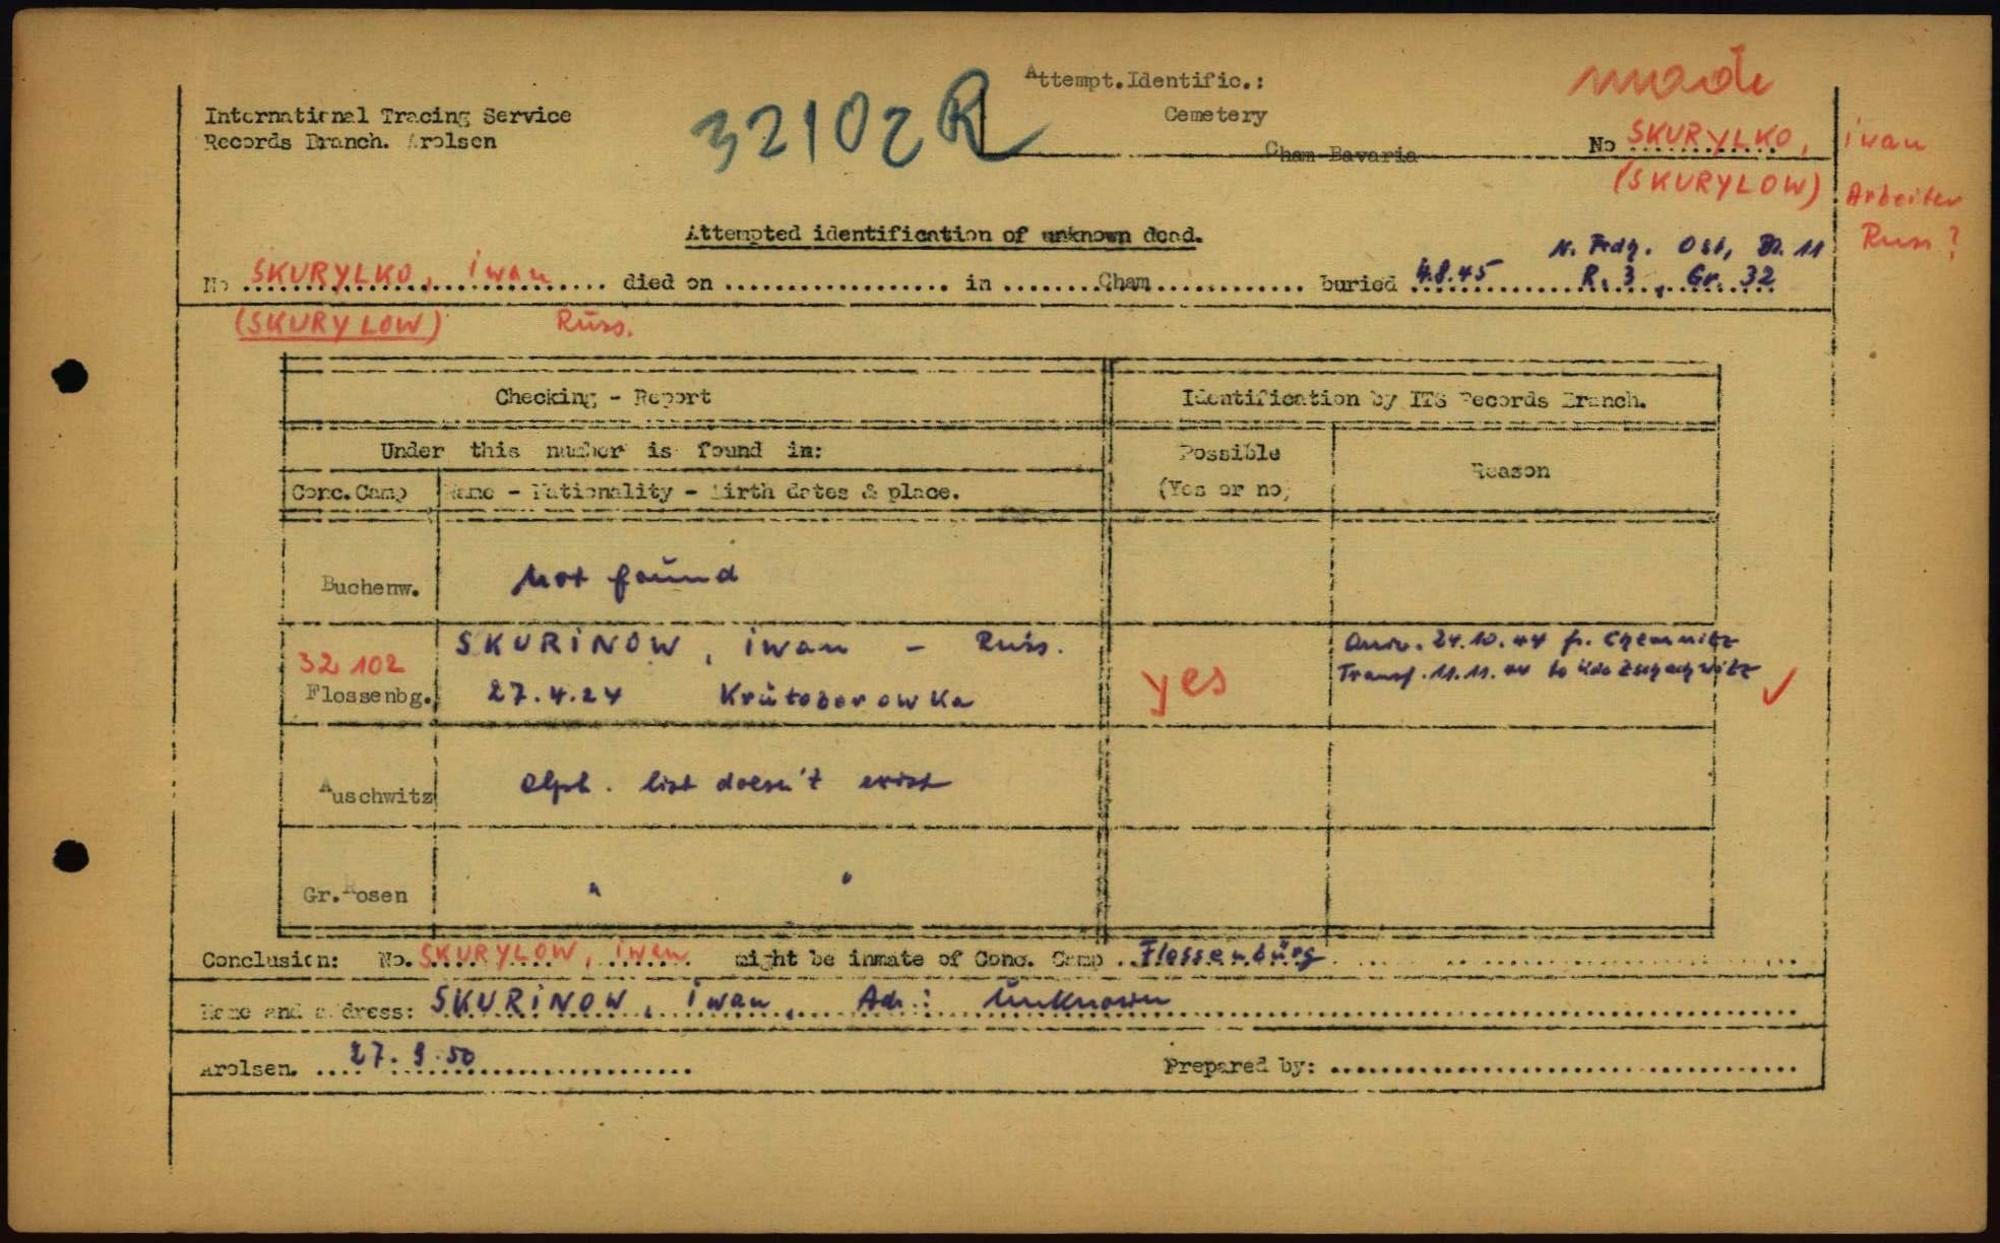 Attempt. Identific.:
International Tracing Service
32102 R
Cemetery
Records Branch. Arolsen
Cham-Bavaria
No SKURYLKO, iwan
(SKURYLOW) Arbeiter
Russ?
Attempted identification of unknown dead.
N. Frdg. Ost, Bl. 11
No SKURYLKO, iwan died on in Cham buried 4.8.45 R. 3, Gr. 32
(SKURYLOW) Russ.
Checking - Report
Identification by ITS Records Branch.
Under this number is found in:
Possible
(Yes or no)
Reason
Conc. Camp
Name - Nationality - Birth dates & place.
Buchenw.
Not found
32102
Flossenbg.
SKURINOW, iwan - Russ.
27.4.24 Krutoborowka
yes
24.10.44 fr. Chemnitz
Transf. 11.11.44 to Kdo Zschachwitz
Auschwitz
Alph. list doesn't exist
Gr. Rosen
" "
Conclusion: No. SKURYLOW, iwan might be inmate of Conc. Camp Flossenbürg
Name and address: SKURINOW, iwan, Adr.: Unknown
Arolsen. 27.9.50
Prepared by: